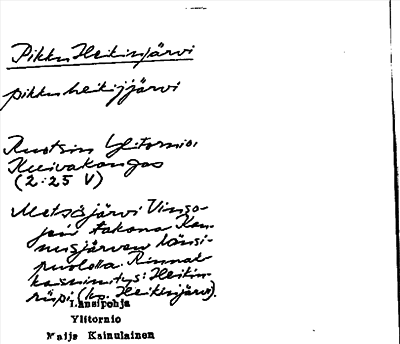 Pikku Heikinjärvi
pikkuheikijjärvi
Ruotsin Ylitornio,
Kuivakangas
(2:25 V)
Metsäjärvi Vinso-
jen takana Kan-
nusjärven länsi-
puolella. Rinnak-
kaisnimitys: Heikin-
(ks. Heikinjärvi).
Länsipohja
Ylitornio
Maija Kainulainen